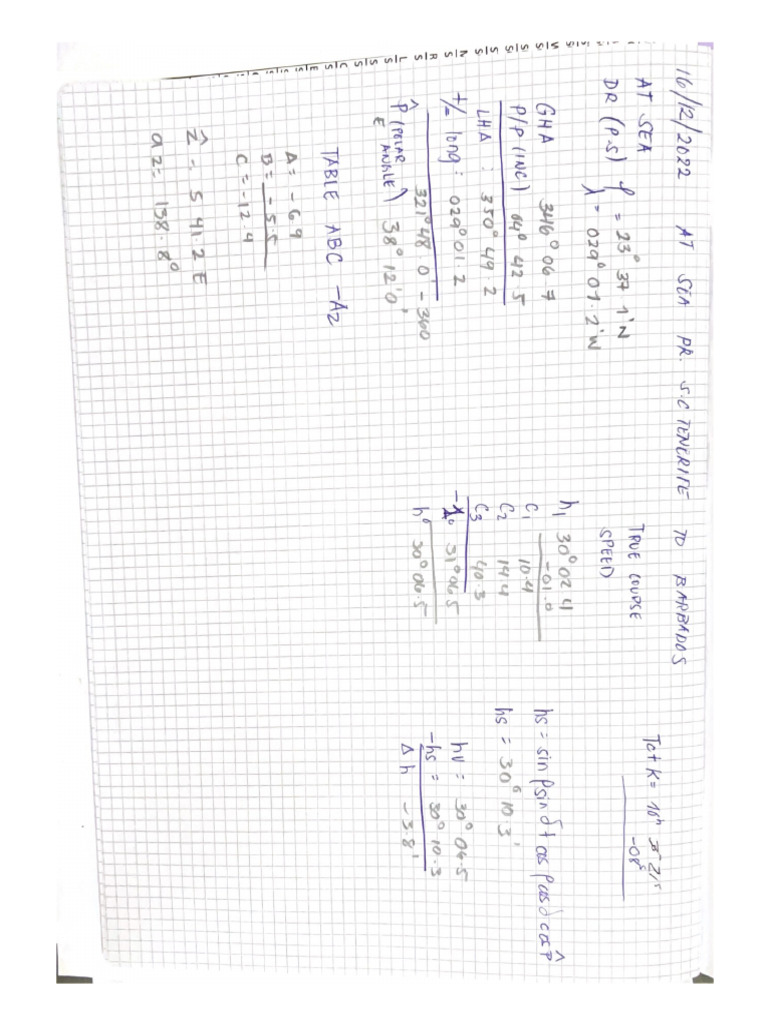 16/12/2022 AT SEA PR. S.C TENERITE TO BARBADOS
AT SEA
DR (P.S) φ = 23° 37 1'N
λ = 029° 01.2'W
GHA 346° 06.7
P/P (INC) 64° 42.5
LHA : 350° 49 2
+/= long: 029° 01.2
321° 48.0' - 360
P̂ (POLAR ANGLE) 38° 12'0'
E
TABLE ABC - Az
A = - 6 9
B = - 5.5
C = - 12 4
Ẑ = S 41.2 E
az = 138.8°
TRUE COURSE
SPEED
h₁ 30° 02 4
-01.0
C₁ 10.4
C₂ 14.4
C₃ 40.3
31° 06.5
h° 30° 06.5
Tot K = 10ʰ 21ˢ
-08ˢ
hs = sin φ sin δ + cos φ cos δ cos P̂
hs = 30° 10.3'
hv = 30° 04.5
-hs = 30° 10.3
Δh - 3.8'